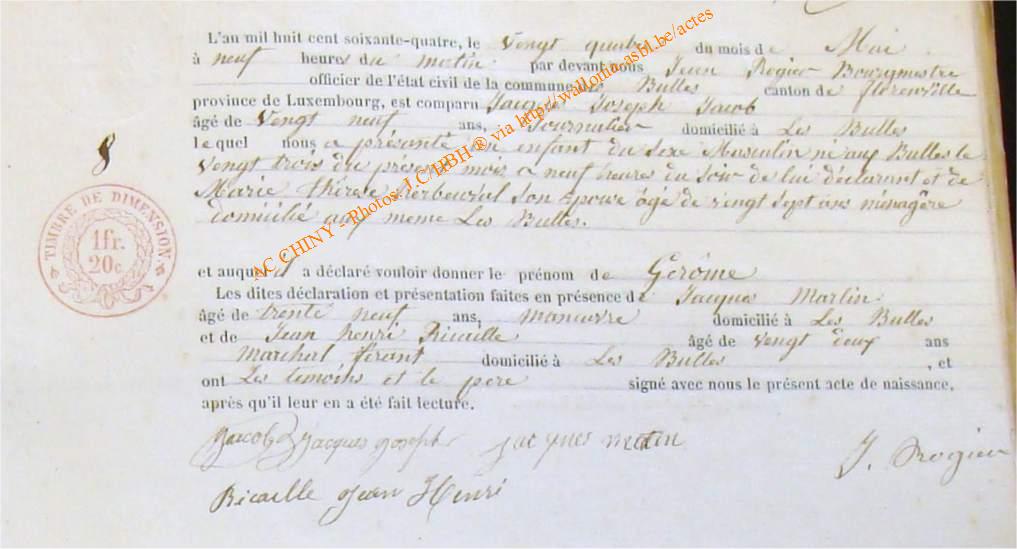 L'an mil huit cent soixante-quatre, le Vingt quatre du mois de Mai
à neuf heures du matin par devant nous Jean Rogier Bourgmestre
officier de l'état civil de la commune des Bulles canton de florenville
province de Luxembourg, est comparu Jacques Joseph Jacob
âgé de Vingt neuf ans, Journalier domicilié à Les Bulles
lequel nous a présenté un enfant du sexe Masculin né aux Bulles le
Vingt trois du présent mois a neuf heures du soir de lui déclarant et de
Marie thérèse son épouse âgé de vingt sept ans ménagère
domicilié aux meme Les Bulles.
8
TIMBRE DE DIMENSION.
1fr.
20c.
et auquel il a déclaré vouloir donner le prénom de Gérôme
Les dites déclaration et présentation faites en présence de Jacques Martin
âgé de trente neuf ans, manœuvre domicilié à Les Bulles
et de Jean henri Ricaille âgé de vingt deux ans
marchal ferant domicilié à Les Bulles, et
ont Les temoins et le pere signé avec nous le présent acte de naissance,
après qu'il leur en a été fait lecture.
Jacob Jacques Joseph jacques martin J. Rogier
Ricaille Jean Henri
AC CHINY - Photos: J.C/HBH ® via http://wallonia-asbl.be/actes